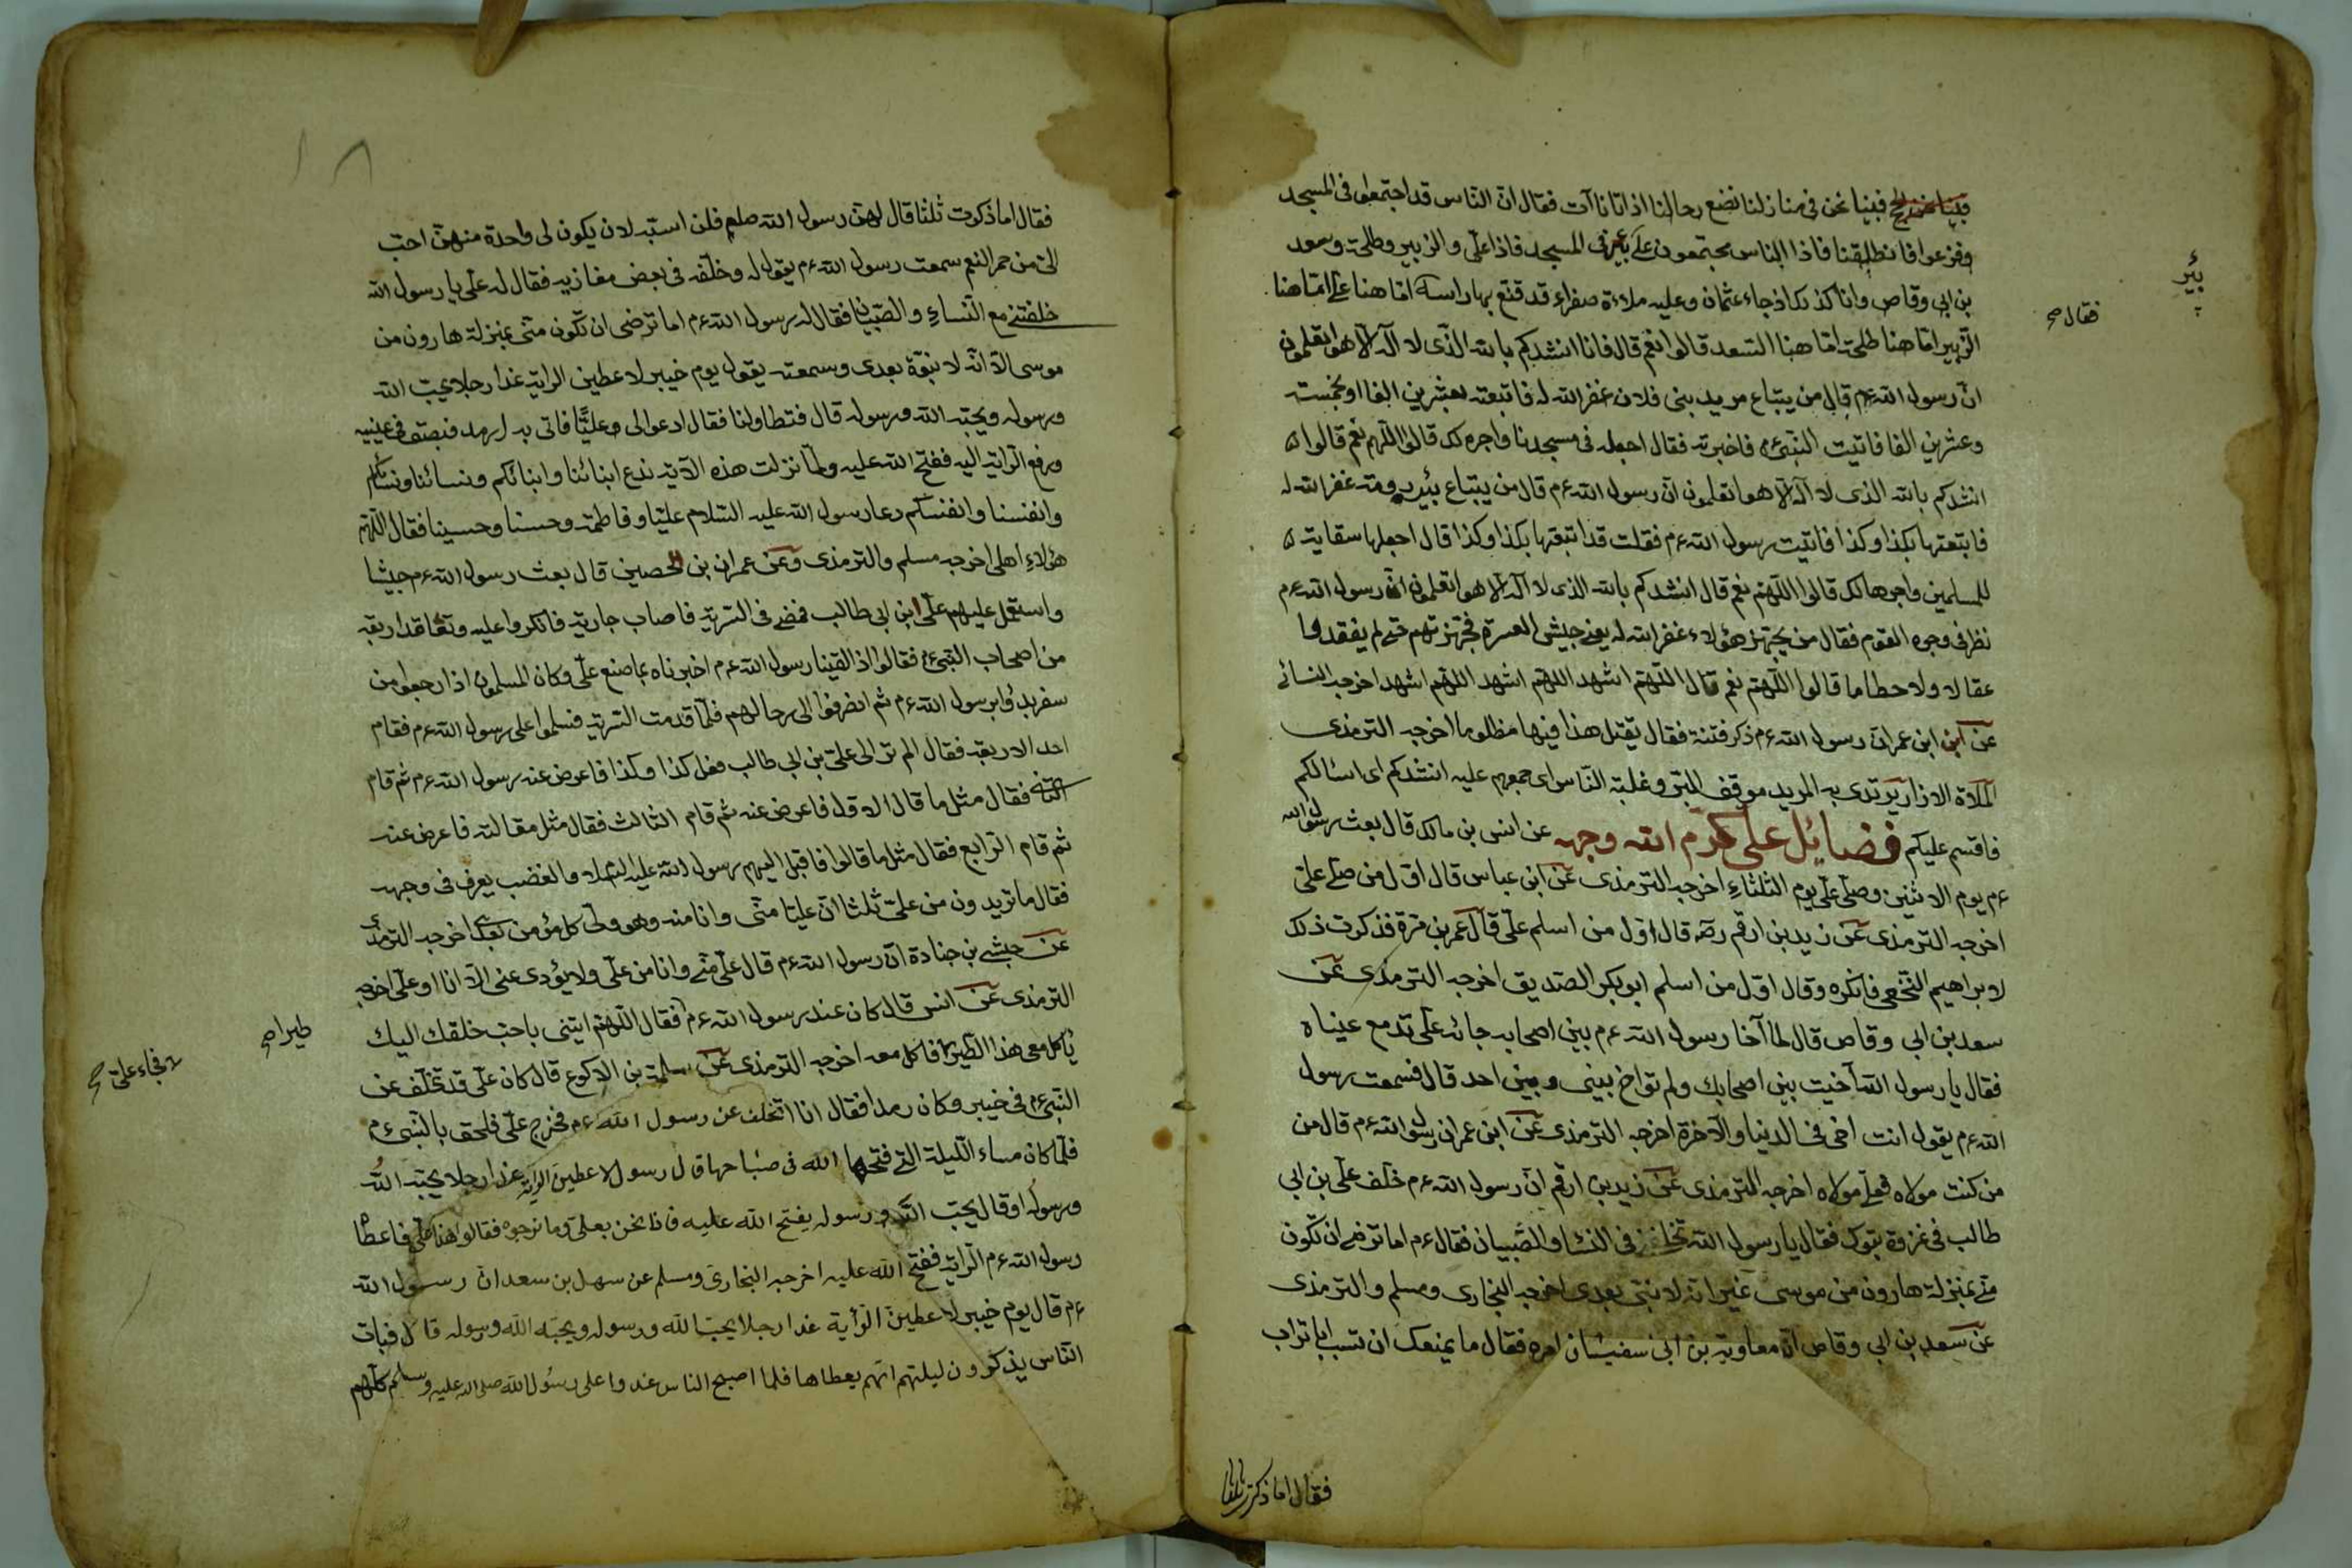 فبينا نحن في منازلنا نضع رحالنا اذ اتانا آت فقال ان الناس قد اجتمعوا في المسجد
وفزعوا فانطلقنا فاذا الناس مجتمعون على بير في المسجد فاذا علي والزبير وطلحة وسعد
بن ابي وقاص وانا كذلك اذ جاء عثمان وعليه ملاءة صفراء قد قنع بها راسه اها هنا علي اها هنا
الزبير اها هنا طلحة اها هنا السعد قالوا نعم قال فانا انشدكم بالله الذي لا اله الا هو اتعلمون
ان رسول الله ءم قال من يبتاع مربد بني فلان غفر الله له فابتعته بعشرين الفا او بخمسة
وعشرين الفا فاتيت النبي ءم فاخبرته فقال اجعله في مسجدنا واجره لك قالوا اللهم نعم قالوا
انشدكم بالله الذي لا اله الا هو اتعلمون ان رسول الله ءم قال من يبتاع بئر رومة غفر الله له
فابتعتها بكذا وكذا فاتيت رسول الله ءم فقلت قد ابتعتها بكذا وكذا قال اجعلها سقاية
للمسلمين واجرها لك قالوا اللهم نعم قال انشدكم بالله الذي لا اله الا هو اتعلمون ان رسول الله ءم
نظر في وجوه القوم فقال من يجهز هؤلاء غفر الله له يعني جيش العسرة فجهزتهم حتى لم يفقدوا
عقالا ولا خطاما قالوا اللهم نعم قال اللهم اشهد اللهم اشهد اللهم اشهد اخرجه النسائي
عن ابن عمر ان رسول الله ءم ذكر فتنة فقال يقتل هذا فيها مظلوما اخرجه الترمذي
الملاة الازار يرتدى به المربد موقف التمر وغلبة الناس اي جمعهم عليه انشدكم اي اسالكم
فاقسم عليكم فضايل علي كرم الله وجهه عن انس بن مالك قال بعث رسول الله
ءم يوم الاثنين وصلى علي يوم الثلثاء اخرجه الترمذي عن ابن عباس قال اول من صلى علي
اخرجه الترمذي عن زيد بن ارقم رضه قال اول من اسلم علي قال عمر بن مرة فذكرت ذلك
لابراهيم النخعي فانكره وقال اول من اسلم ابو بكر الصديق اخرجه الترمذي عن
سعد بن ابي وقاص قال لما آخا رسول الله ءم بين اصحابه جائه علي تدمع عيناه
فقال يا رسول الله آخيت بين اصحابك ولم تواخ بيني وبين احد قال فسمعت رسول
الله ءم يقول انت اخي في الدنيا والآخرة اخرجه الترمذي عن ابن عمر ان رسول الله ءم قال من
من كنت مولاه فعلي مولاه اخرجه الترمذي عن زيد بن ارقم ان رسول الله ءم خلف علي بن ابي
طالب في غزوة تبوك فقال يا رسول الله تخلفني في النساء والصبيان فقال ءم اما ترضى ان تكون
مني بمنزلة هارون من موسى غير انه لا نبي بعدي اخرجه البخاري ومسلم والترمذي
عن سعد بن ابي وقاص ان معاوية بن ابي سفيان امره فقال ما يمنعك ان تسب ابا تراب
فقال اما ذكرت ثلثا
بئر
فقال صح
١٨
فقال اما ذكرت ثلثا قال لهن رسول الله صلم فلن اسبه لان يكون لي واحدة منهن احب
الي من حمر النعم سمعت رسول الله ءم يقول له وخلفه في بعض مغازيه فقال له علي يا رسول الله
خلفتني مع النساء والصبيان فقال له رسول الله ءم اما ترضى ان تكون مني بمنزلة هارون من
موسى الا انه لا نبوة بعدي وسمعته يقول يوم خيبر لاعطين الراية غدا رجلا يحب الله
ورسوله ويحبه الله ورسوله قال فتطاولنا فقال ادعوا لي عليا فاتي به ارمد فبصق في عينيه
ورفع الراية اليه ففتح الله عليه ولما نزلت هذه الآية ندع ابنائنا وابنائكم ونسائنا ونسائكم
وانفسنا وانفسكم دعا رسول الله عليه السلام عليا وفاطمة وحسنا وحسينا فقال اللهم
هؤلاء اهلي اخرجه مسلم والترمذي وعن عمران بن الحصين قال بعث رسول الله ءم جيشا
واستعمل عليهم علي ابن ابي طالب فمضى في السرية فاصاب جارية فانكروا عليه وتعاقد اربعة
من اصحاب النبي ءم فقالوا اذا لقينا رسول الله ءم اخبرناه بما صنع علي وكان المسلمون اذا رجعوا من
سفر بدؤا برسول الله ءم ثم انصرفوا الى رحالهم فلما قدمت السرية فسلموا على رسول الله ءم فقام
احد الاربعة فقال الم تر الى علي بن ابي طالب فعل كذا وكذا فاعرض عنه رسول الله ءم ثم قام
الثاني فقال مثل ما قال الاول فاعرض عنه ثم قام الثالث فقال مثل مقالته فاعرض عنه
ثم قام الرابع فقال مثل ما قالوا فاقبل اليهم رسول الله عليه السلام والغضب يعرف في وجهه
فقال ما تريدون من علي ثلثا ان عليا مني وانا منه وهو ولي كل مؤمن بعدي اخرجه الترمذي
عن حبشي بن جنادة ان رسول الله ءم قال علي مني وانا من علي ولا يؤدي عني الا انا او علي اخرجه
الترمذي عن انس قال كان عند رسول الله ءم فقال اللهم ايتني باحب خلقك اليك
يأكل معي هذا الطير فاكل معه اخرجه الترمذي عن سلمة بن الاكوع قال كان علي قد تخلف عن
النبي ءم في خيبر وكان رمدا فقال انا اتخلف عن رسول الله ءم فخرج علي فلحق بالنبي ءم
فلما كان مساء الليلة التي فتحها الله في صباحها قال رسول لاعطين الراية غدا رجلا يحبه الله
ورسوله او قال يحب الله ورسوله يفتح الله عليه فاذا نحن بعلي وما نرجوه فقالوا هذا علي فاعطا
رسول الله ءم الراية ففتح الله عليه اخرجه البخاري ومسلم عن سهل بن سعد ان رسول الله
ءم قال يوم خيبر لاعطين الرأية غدا رجلا يحب الله ورسوله ويحبه الله ورسوله قال فبات
الناس يذكرون ليلتهم انهم يعطاها فلما اصبح الناس غدوا على رسول الله صلى الله عليه وسلم كلهم
طير صح
فجاء علي صح